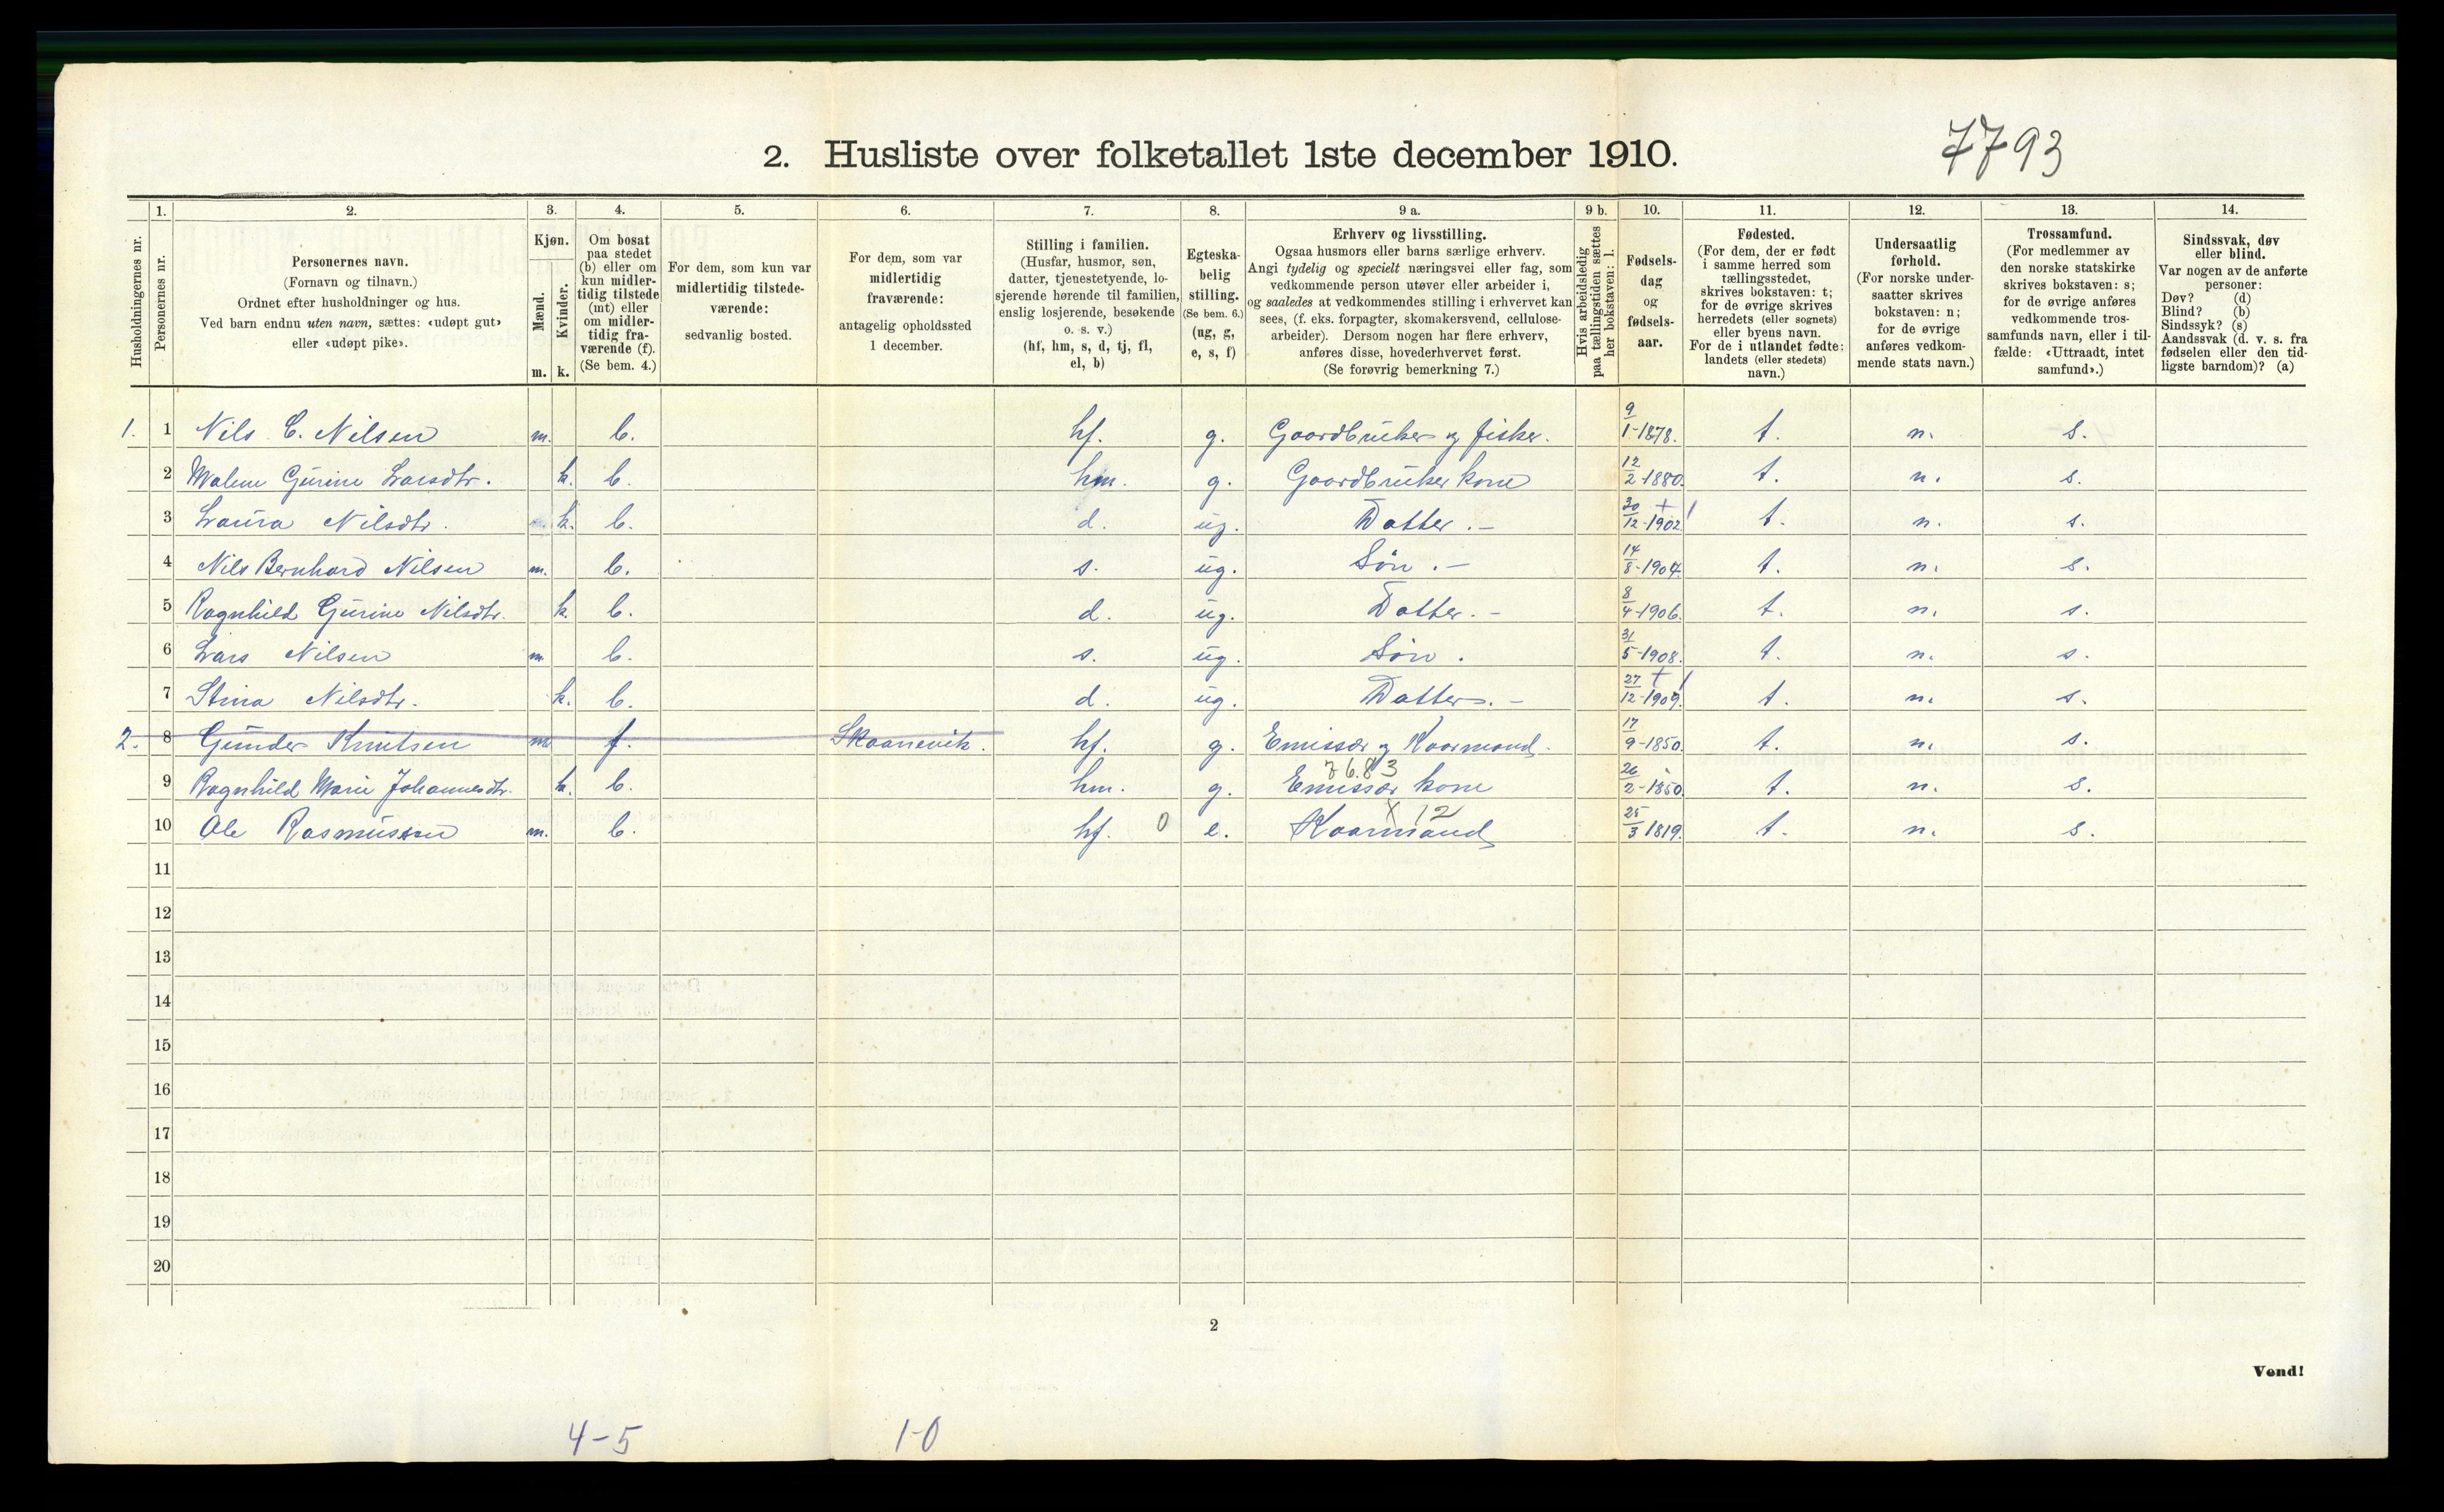 7793
2. Husliste over folketallet 1ste december 1910.
Husholdningernes nr.
1. Personernes nr.
2. Personernes navn.
(Fornavn og tilnavn.)
Ordnet efter husholdninger og hus.
Ved barn endnu uten navn, sættes: «udøpt gut»
eller «udøpt pike».
3. Kjøn.
Mænd. m.
Kvinder. k.
4. Om bosat
paa stedet
(b) eller om
kun midler-
tidig tilstede
(mt) eller
om midler-
tidig fra-
værende (f).
(Se bem. 4.)
5. For dem, som kun var
midlertidig tilstede-
værende:
sedvanlig bosted.
6. For dem, som var
midlertidig
fraværende:
antagelig opholdssted
1 december.
7. Stilling i familien.
(Husfar, husmor, søn,
datter, tjenestetyende, lo-
sjerende hørende til familien,
enslig losjerende, besøkende
o. s. v.)
(hf, hm, s, d, tj, fl,
el, b)
8. Egteska-
belig
stilling.
(Se bem. 6.)
(ug, g,
e, s, f)
9 a. Erhverv og livsstilling.
Ogsaa husmors eller barns særlige erhverv.
Angi tydelig og specielt næringsvei eller fag, som
vedkommende person utøver eller arbeider i,
og saaledes at vedkommendes stilling i erhvervet kan
sees, (f. eks. forpagter, skomakersvend, cellulose-
arbeider). Dersom nogen har flere erhverv,
anføres disse, hovederhvervet først.
(Se forøvrig bemerkning 7.)
9 b. Hvis arbeidsledig
paa tællingstiden sættes
her bokstaven: l.
10. Fødsels-
dag
og
fødsels-
aar.
11. Fødested.
(For dem, der er født
i samme herred som
tællingsstedet,
skrives bokstaven: t;
for de øvrige skrives
herredets (eller sognets)
eller byens navn.
For de i utlandet fødte:
landets (eller stedets)
navn.)
12. Undersaatlig
forhold.
(For norske under-
saatter skrives
bokstaven: n;
for de øvrige
anføres vedkom-
mende stats navn.)
13. Trossamfund.
(For medlemmer av
den norske statskirke
skrives bokstaven: s;
for de øvrige anføres
vedkommende tros-
samfunds navn, eller i til-
fælde: «Uttraadt, intet
samfund».)
14. Sindssvak, døv
eller blind.
Var nogen av de anførte
personer:
Døv? (d)
Blind? (b)
Sindssyk? (s)
Aandssvak (d. v. s. fra
fødselen eller den tid-
ligste barndom)? (a)
1. 1 Nils C. Nilsen m. b. hf. g. Gaardbruker og fisker. 9/1-1878. t. n. s.
2 Malene Gurine Larsdtr. k. b. hm. g. Gaardbruker kone 12/2-1880. t. n. s.
3 Laura Nilsdtr. k. b. d. ug. Datter.- 30/12-1902. + t. n. s.
4 Nils Bernhard Nilsen m. b. s. ug. Søn.- 14/8-1904. t. n. s.
5 Ragnhild Gurine Nilsdtr. k. b. d. ug. Datter.- 8/4-1906. t. n. s.
6 Lars Nilsen m b. s. ug. Søn. 31/5-1908. t. n. s.
7 Stina Nilsdtr. k. b. d. ug. Datter.- 27/12-1909. + t. n. s.
2. 8 Gunder Knutsen m. f. Skaanevik. hf. g. Emissær og Kaarmand. 17/9-1850. t. n. s.
7683
9 Ragnhild Marie Johannesdtr. k. b. hm. g. Emissær kone 26/2-1850. t. n. s.
X 12
10 Ole Rasmussen m. b. hf. 0 e. Kaarmand 25/3 1819. t. n. s.
11
12
13
14
15
16
17
18
19
20
2
Vend!
4-5 1-0